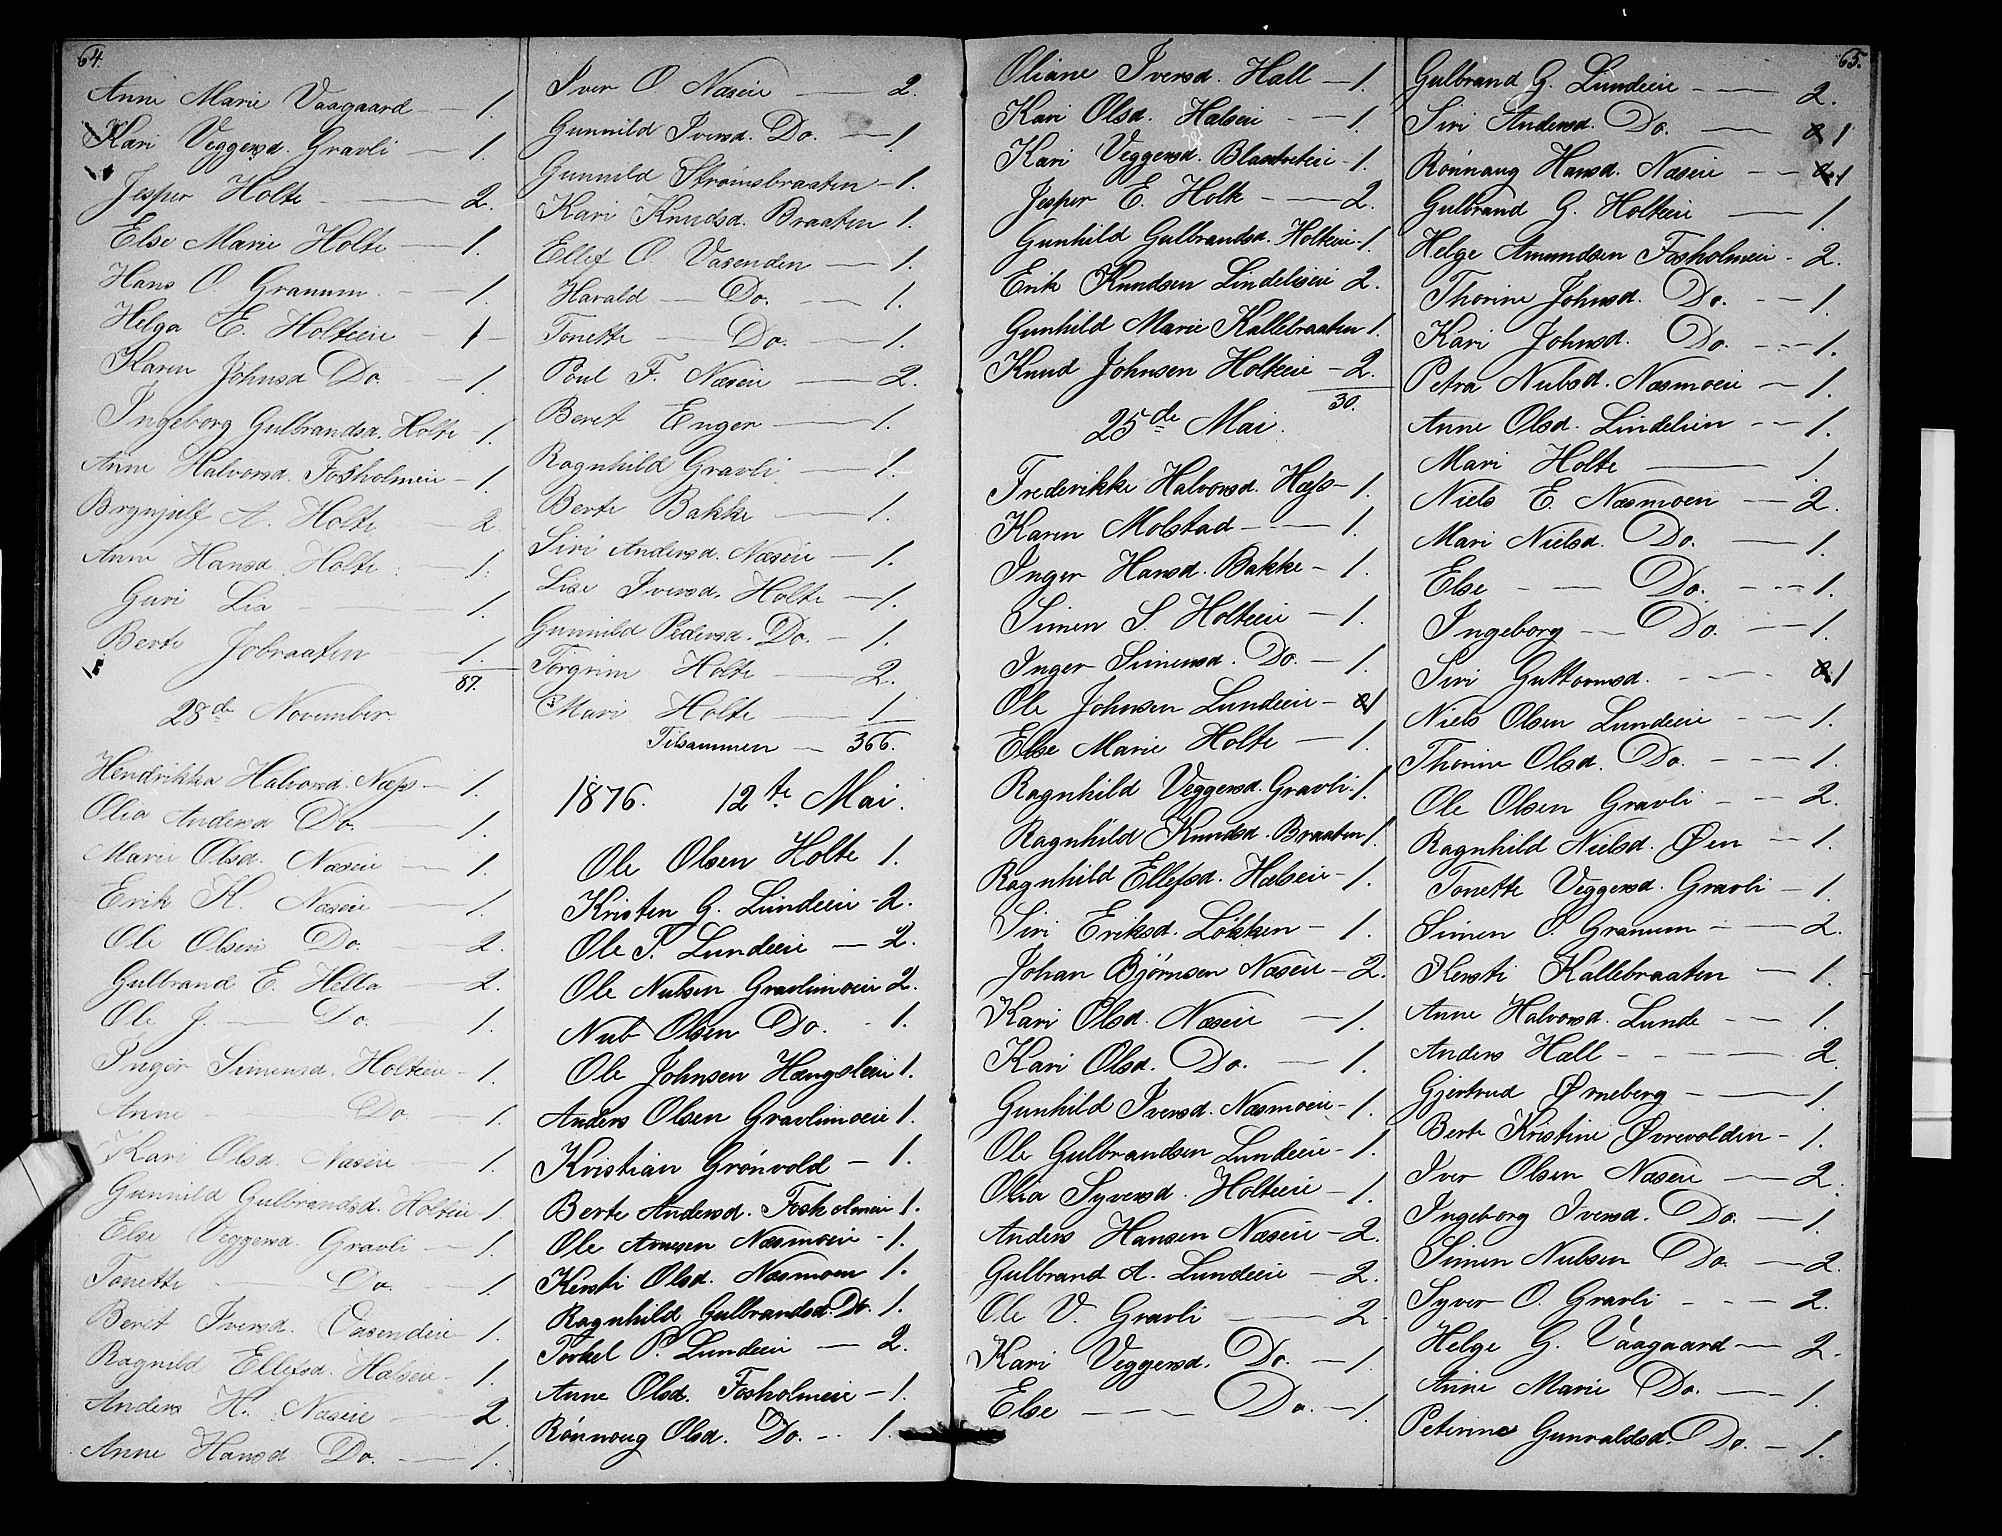 64.
Anne Marie Vaagaard — 1.
Kari Veggersd. Gravli — 1.
Jesper Holte — 2.
Else Marie Holte — 1.
Hans O. Granum — 1.
Helga E. Holteeie — 1
Karen Johnsd Do — 1.
Ingeborg Gulbrandsd. Holte — 1.
Anne Halvorsd. Fosholmeie — 1.
Brynjulf A. Holte 2.
Anne Hansd. Holte — 1.
Guri Lia — 1.
Berte Jobraaten — 1.
87.
28de November.
Hendrikka Halvorsd. Næss — 1.
Olia Andersd Do. — 1.
Marie Olsd. Næseie — 1.
Erik K. Næseie — 1.
Ole Olsen Do. — 2.
Gulbrand E. Hella — 2.
Ole J. — Do. 1.
Inger Simensd. Holteeie — 1.
Anne — Do — 1.
Kari Olsd. Næseie — 1.
Gunnild Gulbrandsd. Holteeie — 1.
Else Veggersd. Gravli — 1.
Tonette — Do. — 1.
Beret Iversd. Vasendeie — 1.
Ragnild Ellefsd. Halseie — 1.
Anders H. Næseie — 2.
Anne Hansd Do. — 1.
Iver O Næseie — 2.
Gunnild Iversd. Do. — 1.
Gunnild Strømsbraaten — 1.
Kari Knudsd. Braaten 1.
Ellef O. Vasenden — 1.
Harald — Do. — 1.
Tonette — Do. — 1.
Poul F. Næseie — 2.
Beret Enger — 1.
Ragnhild Gravli — 1.
Berte Bakke — 1.
Siri Andersd. Næseie — 1.
Lise Iversd. Holte — 1.
Gunnild Pedersd. Do. — 1.
Torgrim Holte — 2.
Mari Holte — 1
Tilsammen — 366.
1876. 12te Mai.
Ole Olsen Holte 1.
Kristen G. Lundeeie - 2.
Ole P. Lundeeie — 2.
Ole Nubsen Gravlimoeie 2.
Nub Olsen Do. - 1.
Ole Johnsen Hængsleeie 1.
Anders Olsen Gravlimoeie 1.
Kristian Grønvold — 1.
Berte Andersd. Fosholmeie 1.
Ole Arnesen Næsmoeie - 1.
Kersti Olsd. Næsmoen 1.
Ragnhild Gulbrandsd. Do. 1.
Torkel P. Lundeeie — 2.
Anne Olsd. Fosholmeie — 1.
Rønnoug Olsd. Do. - 1.
Oliane Iversd. Hall — 1.
Kari Olsd. Halseie — 1.
Kari Veggersd. - 1.
Jesper E. Holte — 2.
Gunhild Gulbrandsd. Holteeie - 1.
Erik Knudsen Lindelieeie 2.
Gunhild Marie Kallebraaten 1.
Knud Johnsen Holteeie — 2.
30.
25de Mai.
Frederikke Halvorsd. Hæss — 1.
Karen Molstad — 1.
Inger Hansd. Bakke — 1.
Simen S. Holteeie — 1.
Inger Simensd. Do. — 1.
Ole Johnsen Lundeeie — 1
Else Marie Holte — 1.
Ragnhild Veggersd. Gravli. 1.
Ragnhild Knudsd. Braaten 1.
Ragnhild Ellefsd. Halseie — 1.
Siri Eriksd. Løkken — 1.
Johan Bjørnsen Næseie — 2.
Kari Olsd. Næseie — 1.
Kari Olsd. Do. — 1.
Gunhild Iversd. Næsmoeie — 1.
Ole Gulbrandsen Lundeeie — 1.
Olia Syversd. Holteeie — 1.
Anders Hansen Næseie — 2.
Gulbrand A. Lundeeie — 2.
Ole V. Gravli — 2.
Kari Veggersd. Do. — 1.
Else — Do. — 1.
65.
Gulbrand G. Lundeeie — 2.
Siri Andersd. Do. — 1
Rønnaug Hansd. Næseie — 1
Gulbrand G. Holteeie — 1.
Helge Amundsen Fosholmeie - 2.
Thorine Johnsd. Do. — 1.
Kari Johnsd. Do. — 1.
Petra Nubsd. Næsmoeie — 1.
Anne Olsd. Lindelien — 1.
Mari Holte — 1.
Niels E. Næsmoen — 2.
Mari Nielsd. Do. — 1.
Else — Do. — 1.
Ingeborg — Do. — 1.
Siri Guttormsd. — 1
Niels Olsen Lundeeie — 1.
Thorine Olsd. Do. — 1.
Ole Olsen Gravli — 2.
Ragnhild Nielsd. Øen — 1.
Tonette Veggersd. Gravli — 1.
Simen O. Granum — 2.
Kersti Kallebraaten — 1.
Anne Halvorsd. Lunde — 1.
Anders Hall — 2.
Gjertrud Ørneberg — 1.
Berte Kristine Øvrevolden — 1.
Iver Olsen Næseie — 2.
Ingeborg Iversd. Do. — 1.
Simen Nubsen Do. — 2.
Syver O. Gravli — 2.
Helge G. Vaagaard — 2.
Anne Marie Do. — 1.
Peterine Gunvaldsd. Do. — 1.